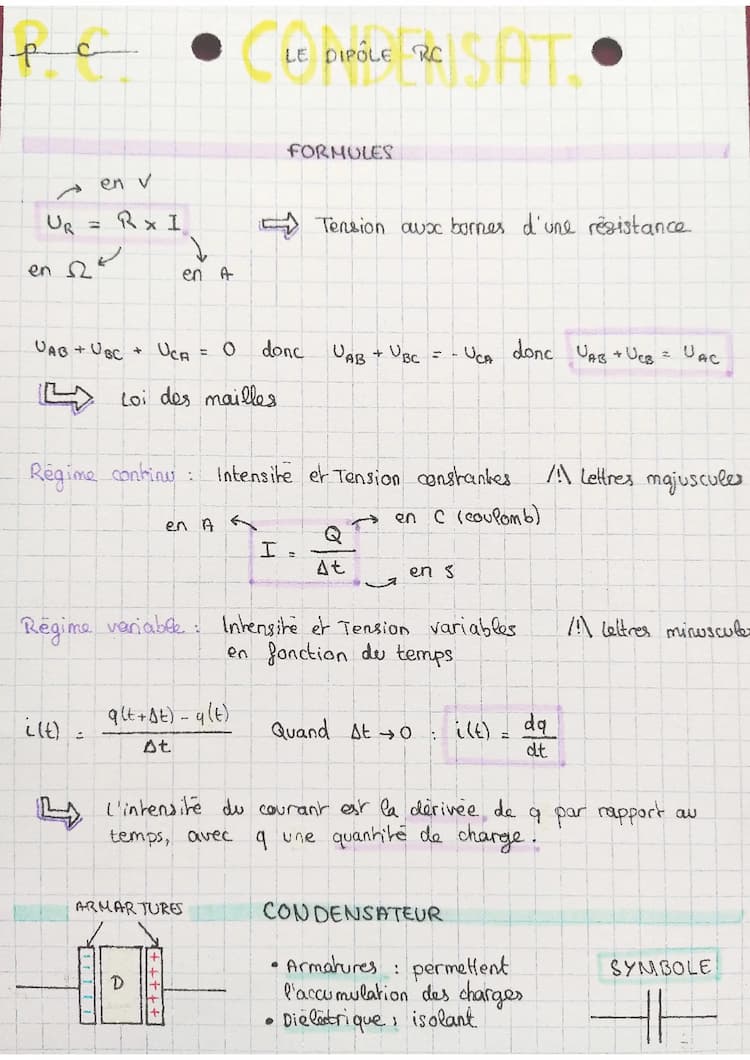 P.C. CONDENSAT.
P C LE DIPÔLE RC
FORMULES
en V
U_R = R x I ⇨ Tension aux bornes d'une résistance
en Ω en A
U_AB + U_BC + U_CA = 0 donc U_AB + U_BC = - U_CA donc U_AB + U_CB = U_AC
Loi des mailles
Régime continu : Intensité et Tension constantes /!\ Lettres majuscules
en A en C (coulomb)
I = Q/Δt
en s
Régime variable : Intensité et Tension variables /!\ Lettres minuscule
en fonction du temps
i(t) = (q(t+Δt) - q(t))/Δt Quand Δt → 0 : i(t) = dq/dt
L'intensité du courant est la dérivée de q par rapport au
temps, avec q une quantité de charge.
ARMARTURES CONDENSATEUR
D
- - - - -
+ + + + +
• Armatures : permettent
l'accumulation des charges
• Diélectrique : isolant
SYMBOLE